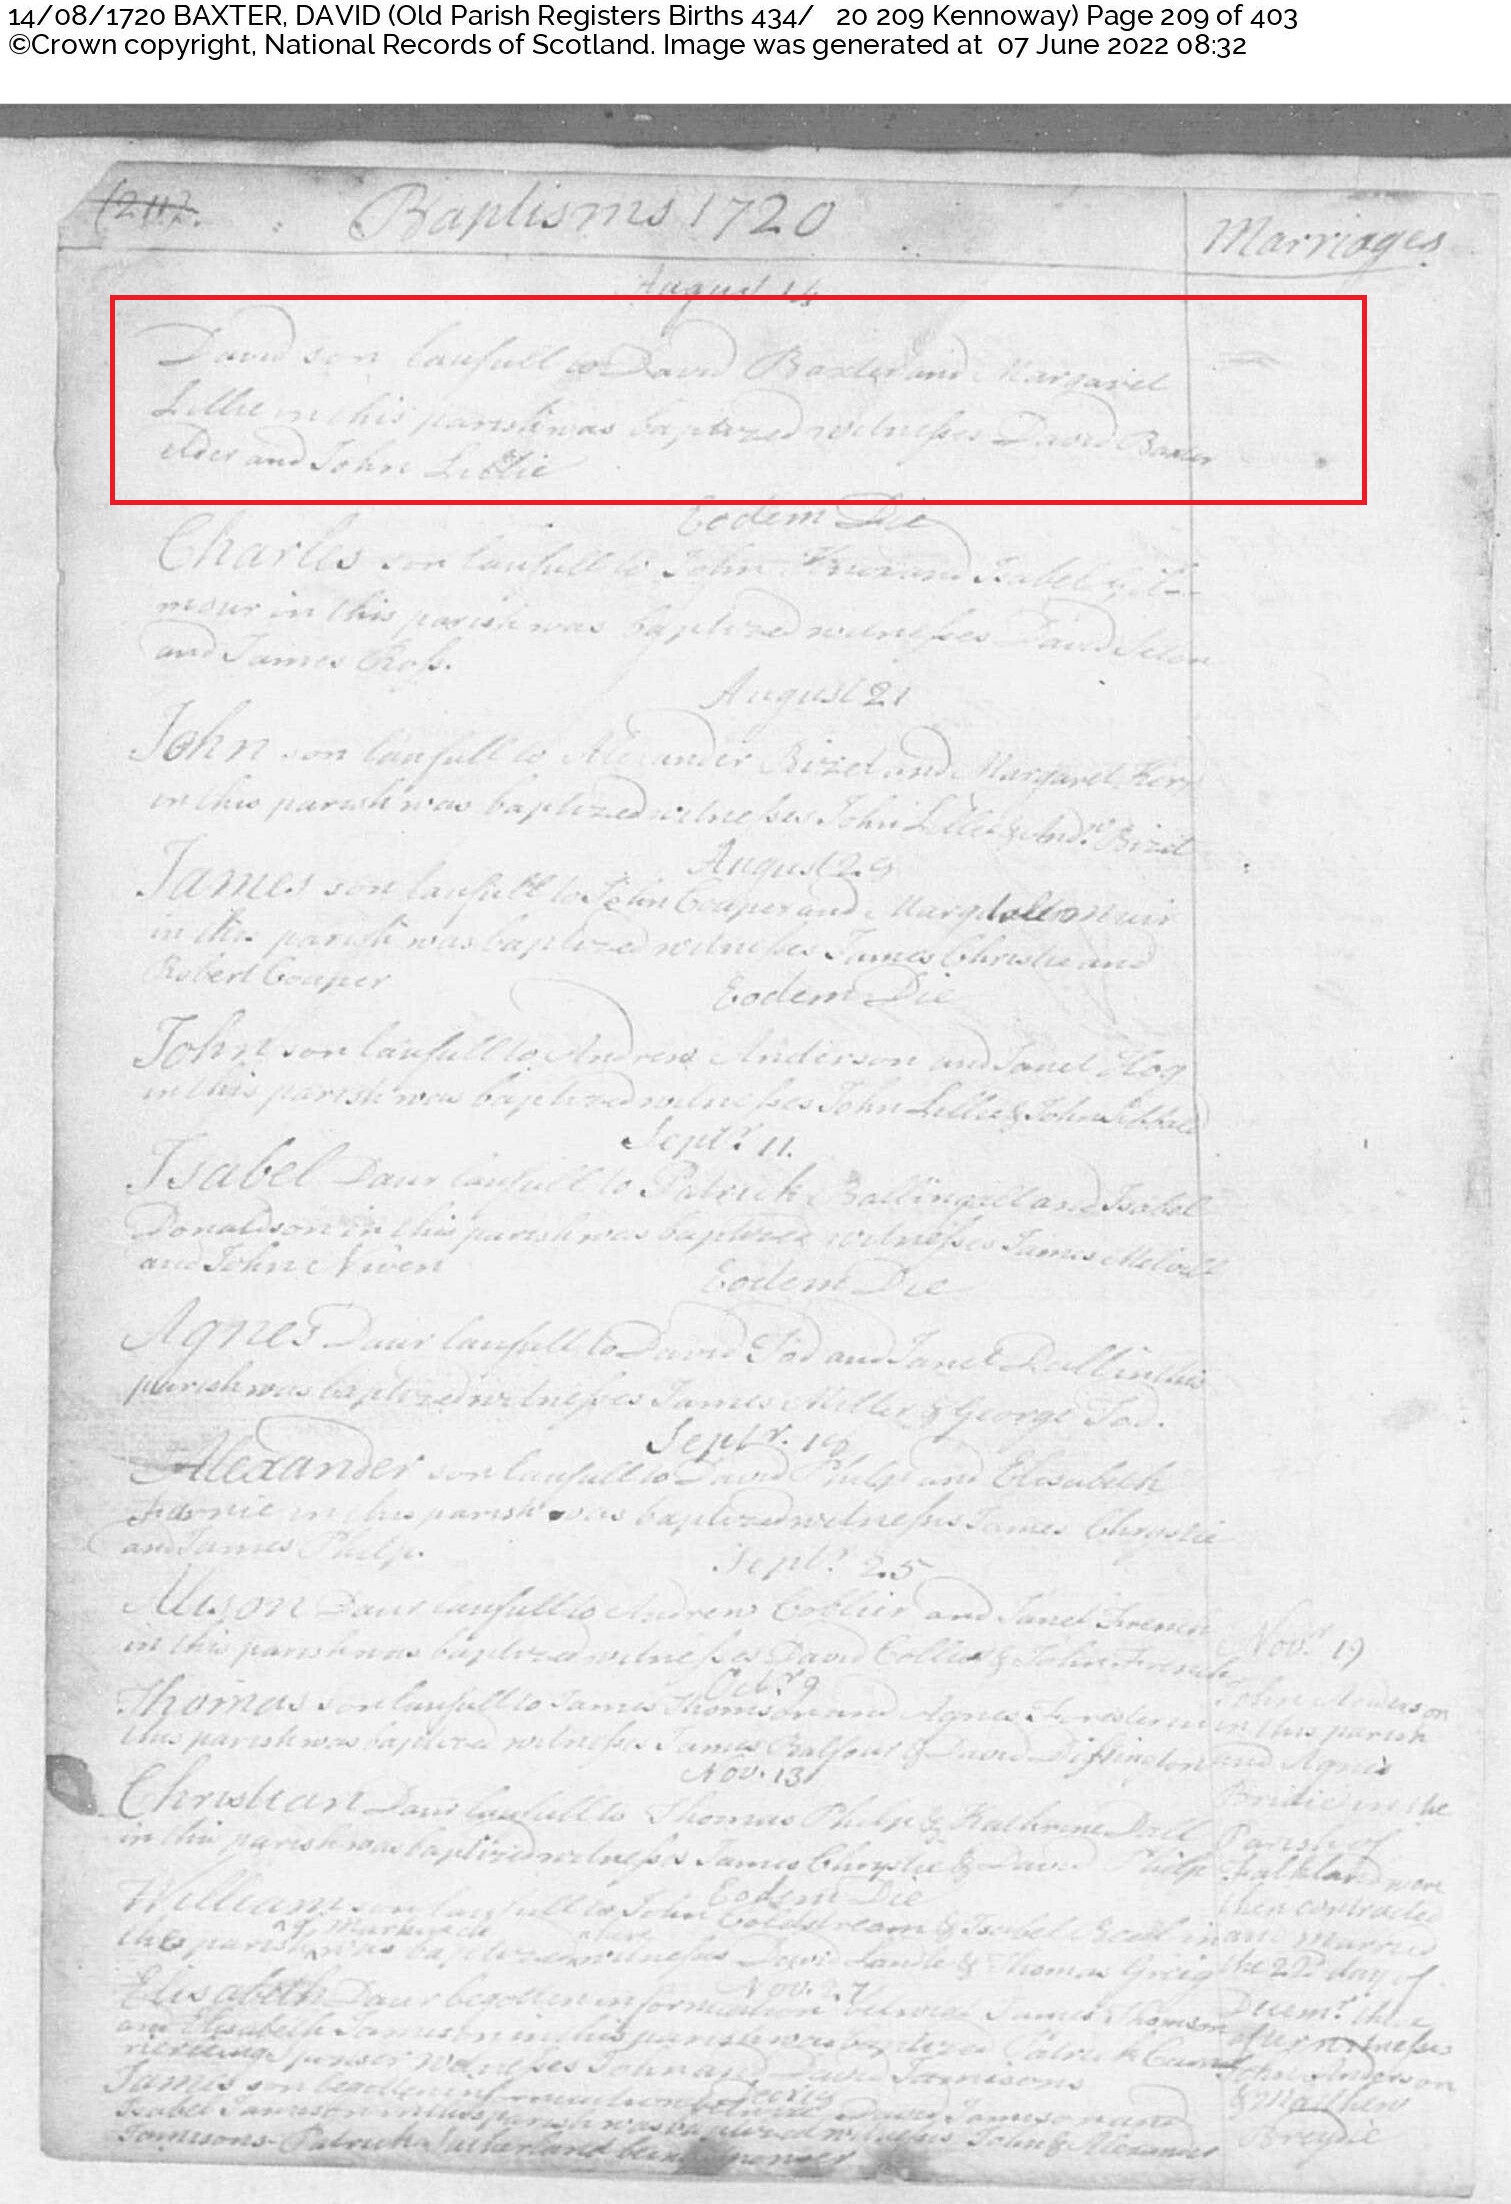 14/08/1720 BAXTER, DAVID (Old Parish Registers Births 434/ 20 209 Kennoway) Page 209 of 403
©Crown copyright, National Records of Scotland. Image was generated at 07 June 2022 08:32
(211).
Baptisms 1720
Marriages
August 14
David son laufull to David Baxter and Margaret
Lillie in this parish was baptized witnesses David Baxter
elder and John Lillie
Eodem Die
Charles son laufull to John and Isabel
mour in this parish was baptized witnesses David
and James Ross.
August 21
John son laufull to Alexander Bizet and Margaret Ker
in this parish was baptized witnesses John Lillie & Andw Bizet
August 29
James son laufull to John Couper and
in this parish was baptized witnesses James Christie and
Robert Couper
Eodem Die
John son laufull to Andrew Anderson and Janet Hog
in this parish was baptized witnesses John Lillie & John Sibbald
Septr. 11.
Isabel Daur laufull to Patrick Ballingall and Isabel
Donaldson in this parish was baptized witnesses James Melvill
and John Niven
Eodem Die
Agnes Daur laufull to David Tod and Janet Dall in this
parish was baptized witnesses James Miller & George Tod.
Septr. 18
Alexander son laufull to David Philp and Elisabeth
in this parish was baptized witnesses James Chrystie
and James Philp.
Septr. 25
Alison Daur laufull to Andrew and Janet French
in this parish was baptized witnesses David & John French
Octbr 9
Thomas son laufull to James Thomson and Agnes Forester in
this parish was baptized witnesses James Balfour & David Dissington
Nov. 13
Christian Daur laufull to Thomas Philp & Kathrine Dall
in this parish was baptized witnesses James Chrystie & David Philp
Eodem Die
William son laufull to John Coldstream & Isobel in
this parish was baptized witnesses David & Thomas Greig
Nov. 27
Elisabeth Daur begotten in fornication betwixt James Thomson
and Elisabeth Jamieson in this parish was baptized Patrick
sponser witnesses John and David Jamisons
James son begotten in fornication betwixt David Jamison and
Isabel Jamieson in this parish was baptized witnesses John & Alexander
Jamisons Patrick Sutherland being sponser
Novr. 19
John Anderson
in this parish
and Agnes
Bridie in the
Parish of
Falkland were
then contracted
and married
the 22d day of
Decemr. there
after witnesses
John Anderson
& Matthew
Breydie